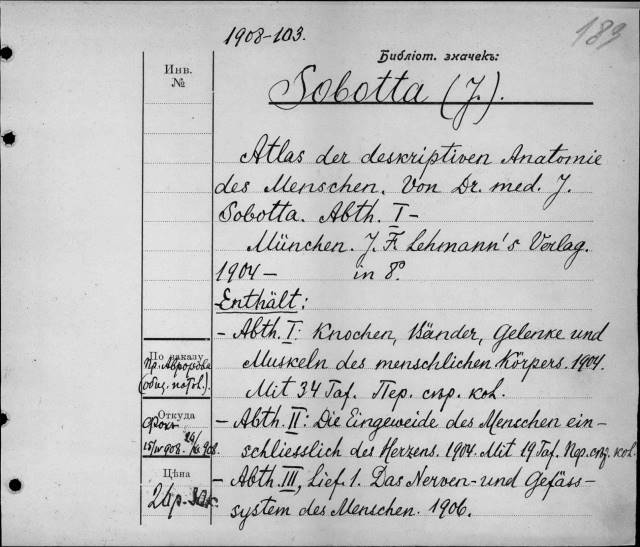 1908-103.
189
Библіот. значекъ:
Инв.
№
Sobotta (J.).
Atlas der deskriptiven Anatomie
des Menschen. Von Dr. med. J.
Sobotta. Abth. I-
München. J. F. Lehmann's Verlag.
1904- in 8º.
Enthält:
- Abth. I: Knochen, Bänder, Gelenke und
Muskeln des menschlichen Körpers. 1904.
Mit 34 Taf. Пер. съ кож.
- Abth. II: Die Eingeweide des Menschen ein-
schliesslich des Herzens. 1904. Mit 19 Taf. Пер. съ кож.
- Abth. III, Lief. 1. Das Nerven- und Gefäss-
system des Menschen. 1906.
По заказу
Пр.
Откуда
908.
Цѣна